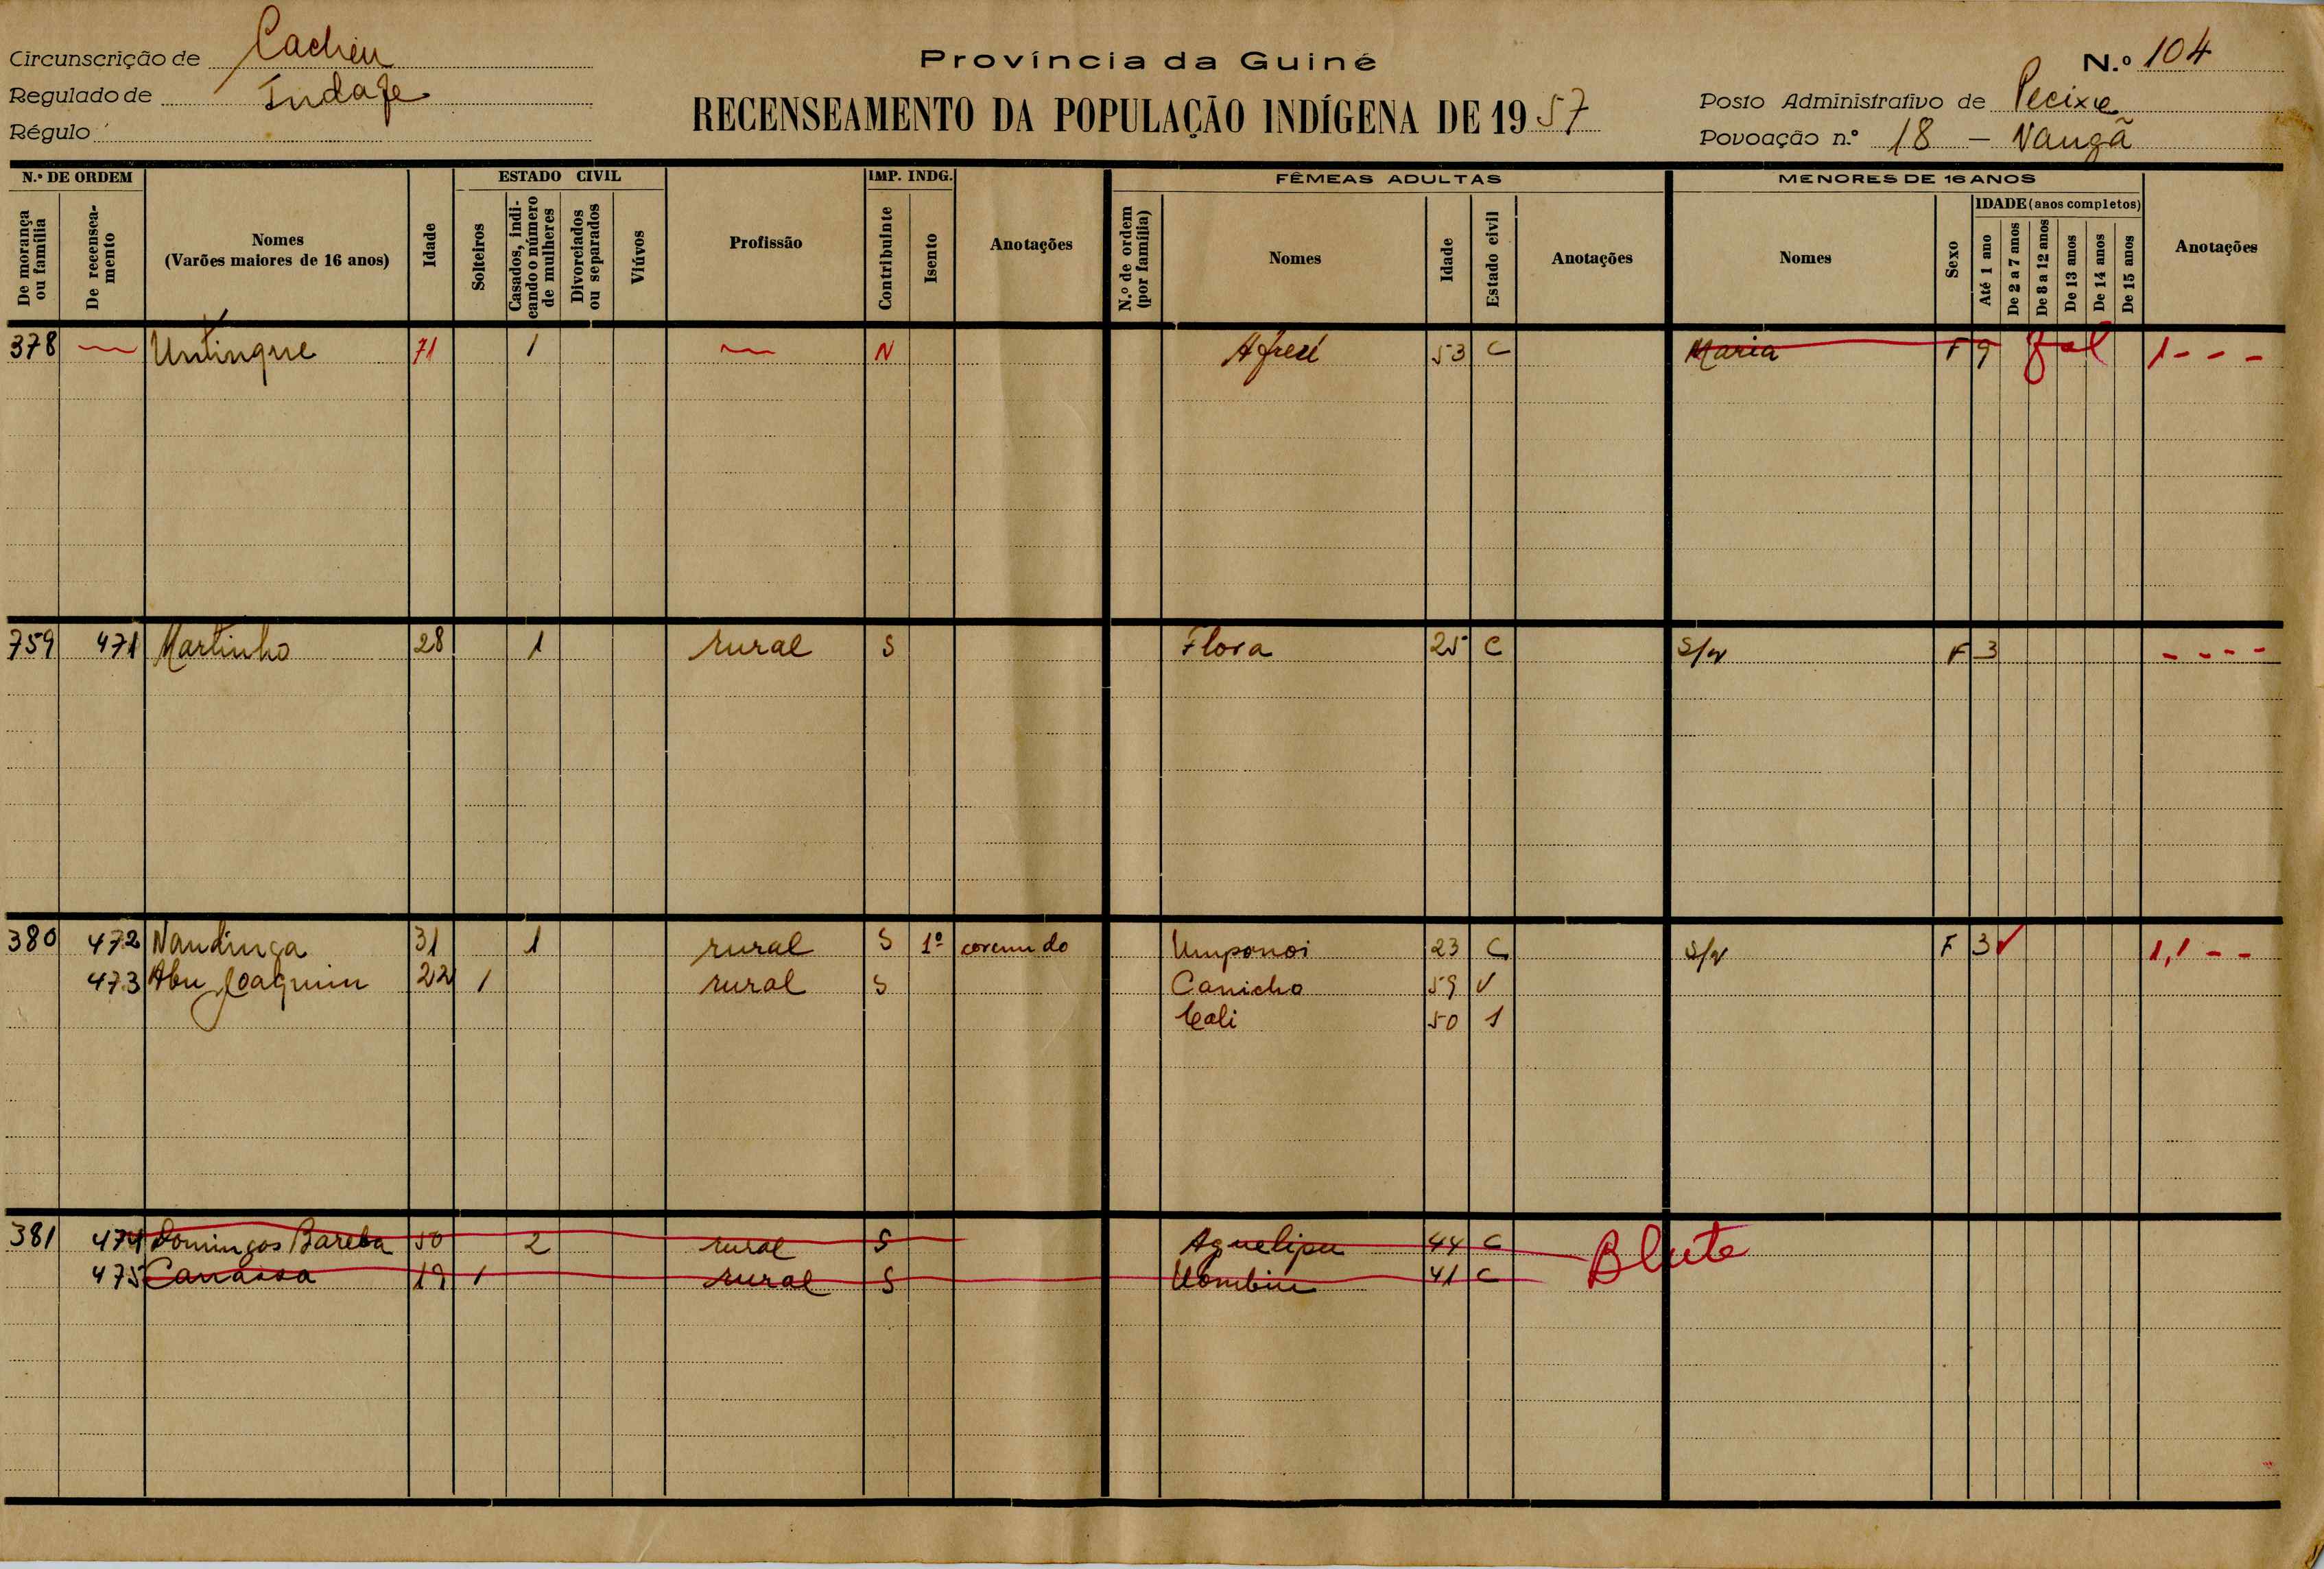 Circunscrição de Cacheu
Regulado de Indafe
Régulo
Província da Guiné
RECENSEAMENTO DA POPULAÇÃO INDÍGENA DE 1957
N.º 104
Posto Administrativo de Pecixe
Povoação n.º 18 - Nangã
N.º DE ORDEM
De morança ou família
De recenseamento
Nomes
(Varões maiores de 16 anos)
Idade
ESTADO CIVIL
Solteiros
Casados, indicando o número de mulheres
Divorciados ou separados
Viúvos
Profissão
IMP. INDG.
Contribuinte
Isento
Anotações
FÊMEAS ADULTAS
N.º de ordem (por família)
Nomes
Idade
Estado civil
Anotações
MENORES DE 16 ANOS
Nomes
Sexo
IDADE (anos completos)
Até 1 ano
De 2 a 7 anos
De 8 a 12 anos
De 13 anos
De 14 anos
De 15 anos
Anotações
378 — Untinque 71 1 — N 53 C Maria F 9 fal 1 - - -
759 471 Martinho 28 1 rural S Flora 25 C S/N F 3 - - - -
380 472 Nandinga 31 1 rural S 1º corcundo Umponoi 23 C S/N F 3 1,1 - -
473 Abu Joaquim 22 1 rural S Canicho 59 V
Cali 50 1
381 474 Domingos Bareba 50 2 rural S Aguelipu 44 C Blute
475 Canassa 19 1 rural S Uombiu 41 C